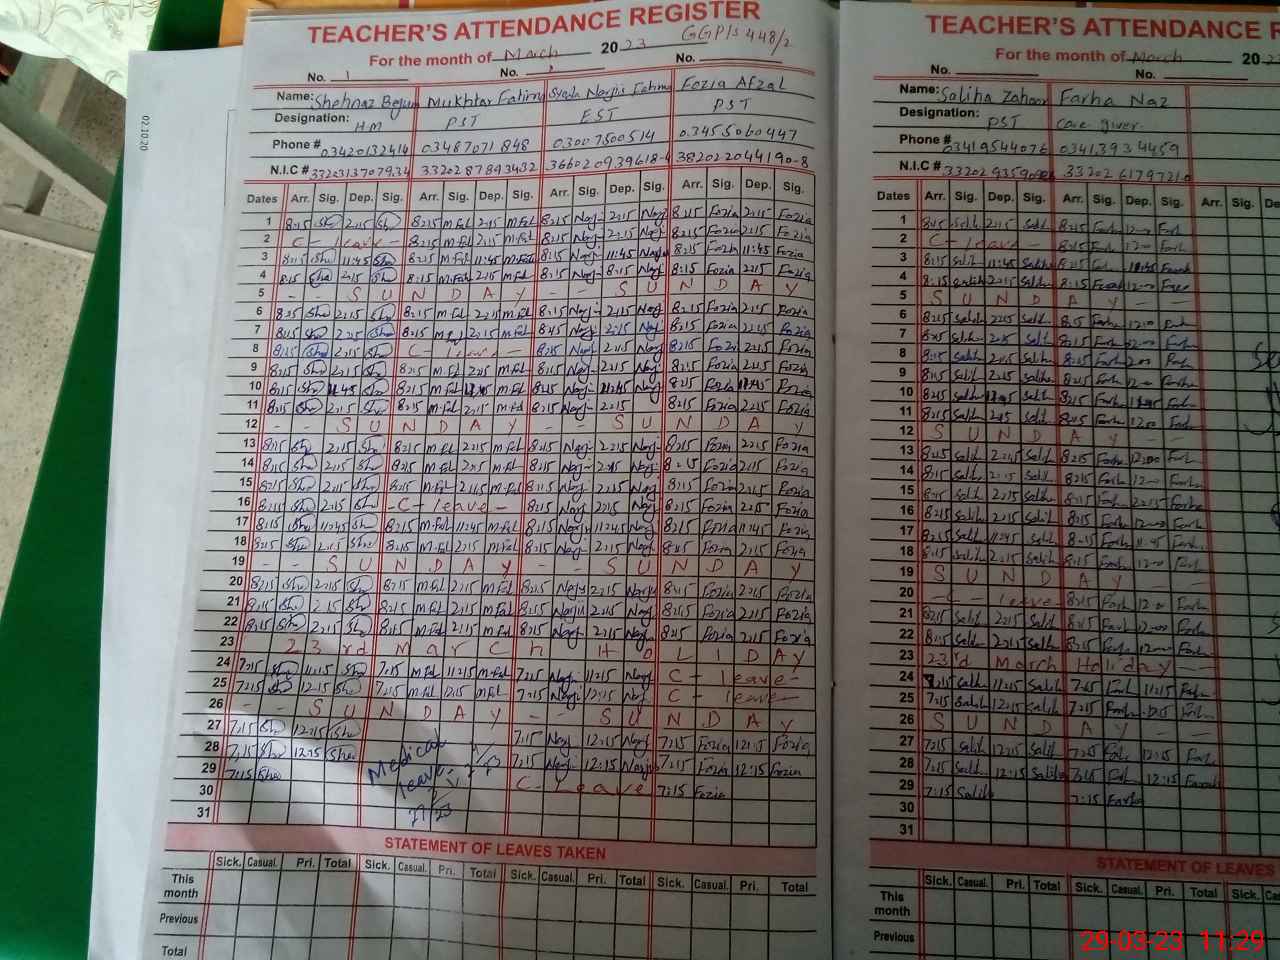 TEACHER'S ATTENDANCE REGISTER
For the month of March 2023 GGPS 448/2
No. 1 No. No.
Name: Shehnaz Begum Mukhtar Fatima Syeda Narjis Fatima Fozia Afzal
Designation: HM PST EST PST
Phone # 03420132414 03487071848 03007500514 03455060447
N.I.C #
Dates Arr. Sig. Dep. Sig. Arr. Sig. Dep. Sig. Arr. Sig. Dep. Sig. Arr. Sig. Dep. Sig.
1 8:15 Sha 2:15 Sha 8:15 M.Fat 2:15 M.Fat 8:15 Narj 2:15 Narj 8:15 Fozia 2:15 Fozia
2 C - leave - 8:15 M.Fat 2:15 M.Fat 8:15 Narj 2:15 Narj 8:15 Fozia 2:15 Fozia
3 8:15 Sha 11:45 Sha 8:15 M.Fat 11:45 M.Fat 8:15 Narj 11:45 Narj 8:15 Fozia 11:45 Fozia
4 8:15 Sha 2:15 Sha 8:15 M.Fat 2:15 M.Fat 8:15 Narj 8:15 Narj 8:15 Fozia 2:15 Fozia
5 - - S U N D A Y - - S U N D A Y
6 8:15 Sha 2:15 Sha 8:15 M.Fat 2:15 M.Fat 8:15 Narj 2:15 Narj 8:15 Fozia 2:15 Fozia
7 8:15 Sha 2:15 Sha 8:15 M.Fat 2:15 M.Fat 8:15 Narj 2:15 Narj 8:15 Fozia 2:15 Fozia
8 8:15 Sha 2:15 Sha C - leave - 8:15 Narj 2:15 Narj 8:15 Fozia 2:15 Fozia
9 8:15 Sha 2:15 Sha 8:15 M.Fat 2:15 M.Fat 8:15 Narj 2:15 Narj 8:15 Fozia 2:15 Fozia
10 8:15 Sha 11:45 Sha 8:15 M.Fat 11:45 M.Fat 8:15 Narj 11:45 Narj 8:15 Fozia 11:45 Fozia
11 8:15 Sha 2:15 Sha 8:15 M.Fat 2:15 M.Fat 8:15 Narj 2:15 8:15 Fozia 2:15 Fozia
12 - - S U N D A Y - - S U N D A Y
13 8:15 Sha 2:15 Sha 8:15 M.Fat 2:15 M.Fat 8:15 Narj 2:15 Narj 8:15 Fozia 2:15 Fozia
14 8:15 Sha 2:15 Sha 8:15 M.Fat 2:15 M.Fat 8:15 Narj 2:15 Narj 8:15 Fozia 2:15 Fozia
15 8:15 Sha 2:15 Sha 8:15 M.Fat 2:15 M.Fat 8:15 Narj 2:15 Narj 8:15 Fozia 2:15 Fozia
16 8:15 Sha 2:15 Sha - C - leave - 8:15 Narj 2:15 Narj 8:15 Fozia 2:15 Fozia
17 8:15 Sha 11:45 Sha 8:15 M.Fat 11:45 M.Fat 8:15 Narj 11:45 Narj 8:15 Fozia 11:45 Fozia
18 8:15 Sha 2:15 Sha 8:15 M.Fat 2:15 M.Fat 8:15 Narj 2:15 Narj 8:15 Fozia 2:15 Fozia
19 - - S U N D A Y - - S U N D A Y
20 8:15 Sha 2:15 Sha 8:15 M.Fat 2:15 M.Fat 8:15 Narj 2:15 Narj 8:15 Fozia 2:15 Fozia
21 8:15 Sha 2:15 Sha 8:15 M.Fat 2:15 M.Fat 8:15 Narj 2:15 Narj 8:15 Fozia 2:15 Fozia
22 8:15 Sha 2:15 Sha 8:15 M.Fat 2:15 M.Fat 8:15 Narj 2:15 Narj 8:15 Fozia 2:15 Fozia
23 23rd March HOLIDAY
24 7:15 Sha 11:15 Sha 7:15 M.Fat 11:15 M.Fat 7:15 Narj 11:15 Narj C - leave -
25 7:15 Sha 12:15 Sha 7:15 M.Fat 12:15 M.Fat 7:15 Narj 12:15 Narj C - leave
26 - - S U N D A Y - - S U N D A Y
27 7:15 Sha 12:15 Sha 7:15 Narj 12:15 Narj 7:15 Fozia 12:15 Fozia
28 7:15 Sha 12:15 Sha Medical leave 7:15 Narj 12:15 Narj 7:15 Fozia 12:15 Fozia
29 7:15 Sha C - Leave 7:15 Fozia
30
31
STATEMENT OF LEAVES TAKEN
Sick. Casual. Pri. Total Sick. Casual. Pri. Total Sick. Casual. Pri. Total Sick. Casual. Pri. Total
This month
Previous
Total
02.10.20
TEACHER'S ATTENDANCE R
For the month of March 20
No. No.
Name: Saliha Zahoor Farha Naz
Designation: PST Care giver
Phone # 03419544076 03413934459
N.I.C #
Dates Arr. Sig. Dep. Sig. Arr. Sig. Dep. Sig. Arr. Sig. Dep.
1 8:15 Salih 2:15 Salih 8:15 Farha 12:00 Farh
2 C - leave - 8:15 Farha 12:00 Farh
3 8:15 Salih 11:45 Salih 8:15 Farh 11:45 Farah
4 8:15 Salih 2:15 Salih 8:15 Farha 12:00 Farh
5 S U N D A Y - -
6 8:15 Salih 2:15 Salih 8:15 Farha 12:00 Farh
7 8:15 Salih 2:15 Salih 8:15 Farha 12:00 Farh
8 8:15 Salih 2:15 Salih 8:15 Farha 12:00 Farh
9 8:15 Salih 2:15 Salih 8:15 Farha 12:00 Farh
10 8:15 Salih 11:45 Salih 8:15 Farha 11:45 Farh
11 8:15 Salih 2:15 Salih 8:15 Farha 12:00 Farh
12 S U N D A Y - -
13 8:15 Salih 2:15 Salih 8:15 Farha 12:00 Farh
14 8:15 Salih 2:15 Salih 8:15 Farha 12:00 Farh
15 8:15 Salih 2:15 Salih 8:15 Farha 2:15 Farha
16 8:15 Salih 2:15 Salih 8:15 Farha 12:00 Farh
17 8:15 Salih 11:45 Salih 8:15 Farha 11:45 Farh
18 8:15 Salih 2:15 Salih 8:15 Farha 12:00 Farh
19 S U N D A Y - -
20 - C - leave 8:15 Farh 12:00 Farh
21 8:15 Salih 2:15 Salih 8:15 Farh 12:00 Farh
22 8:15 Salih 2:15 Salih 8:15 Farh 12:00 Farh
23 23rd March Holiday - -
24 7:15 Salih 11:15 Salih 7:15 Farh 11:15 Farh
25 7:15 Salih 12:15 Salih 7:15 Farh 12:15 Farh
26 S U N D A Y - -
27 7:15 Salih 12:15 Salih 7:15 Farh 12:15 Farh
28 7:15 Salih 12:15 Salih 7:15 Farh 12:15 Farah
29 7:15 Salih 7:15 Farha
30
31
STATEMENT OF LEAVES
Sick. Casual. Pri. Total Sick. Casual. Pri. Total Sick. Ca
This month
Previous
29-03-23 11:29